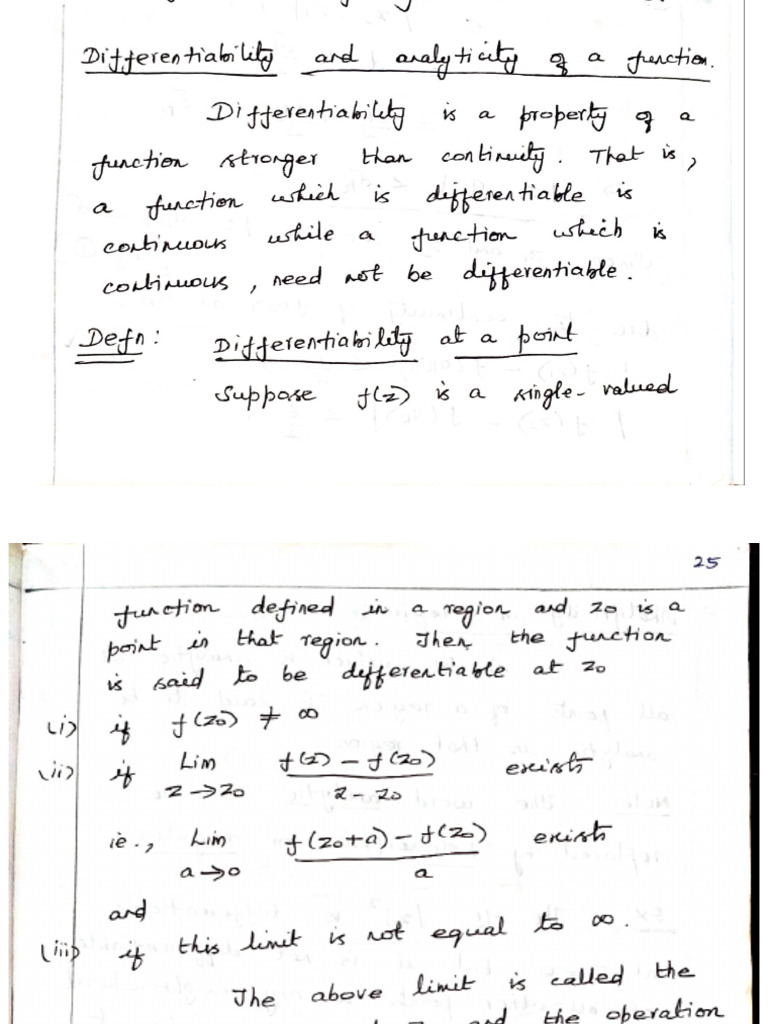 Differentiability and analyticity of a function.
Differentiability is a property of a
function stronger than continuity. That is,
a function which is differentiable is
continuous while a function which is
continuous, need not be differentiable.
Defn: Differentiability at a point
Suppose f(z) is a single-valued
25
function defined in a region and z0 is a
point in that region. Then the function
is said to be differentiable at z0
(i) if f(z0) ≠ ∞
(ii) if Lim z→z0 (f(z) - f(z0))/(z - z0) exists
ie., Lim a→0 (f(z0+a) - f(z0))/a exists
and
(iii) if this limit is not equal to ∞.
The above limit is called the
and the operation